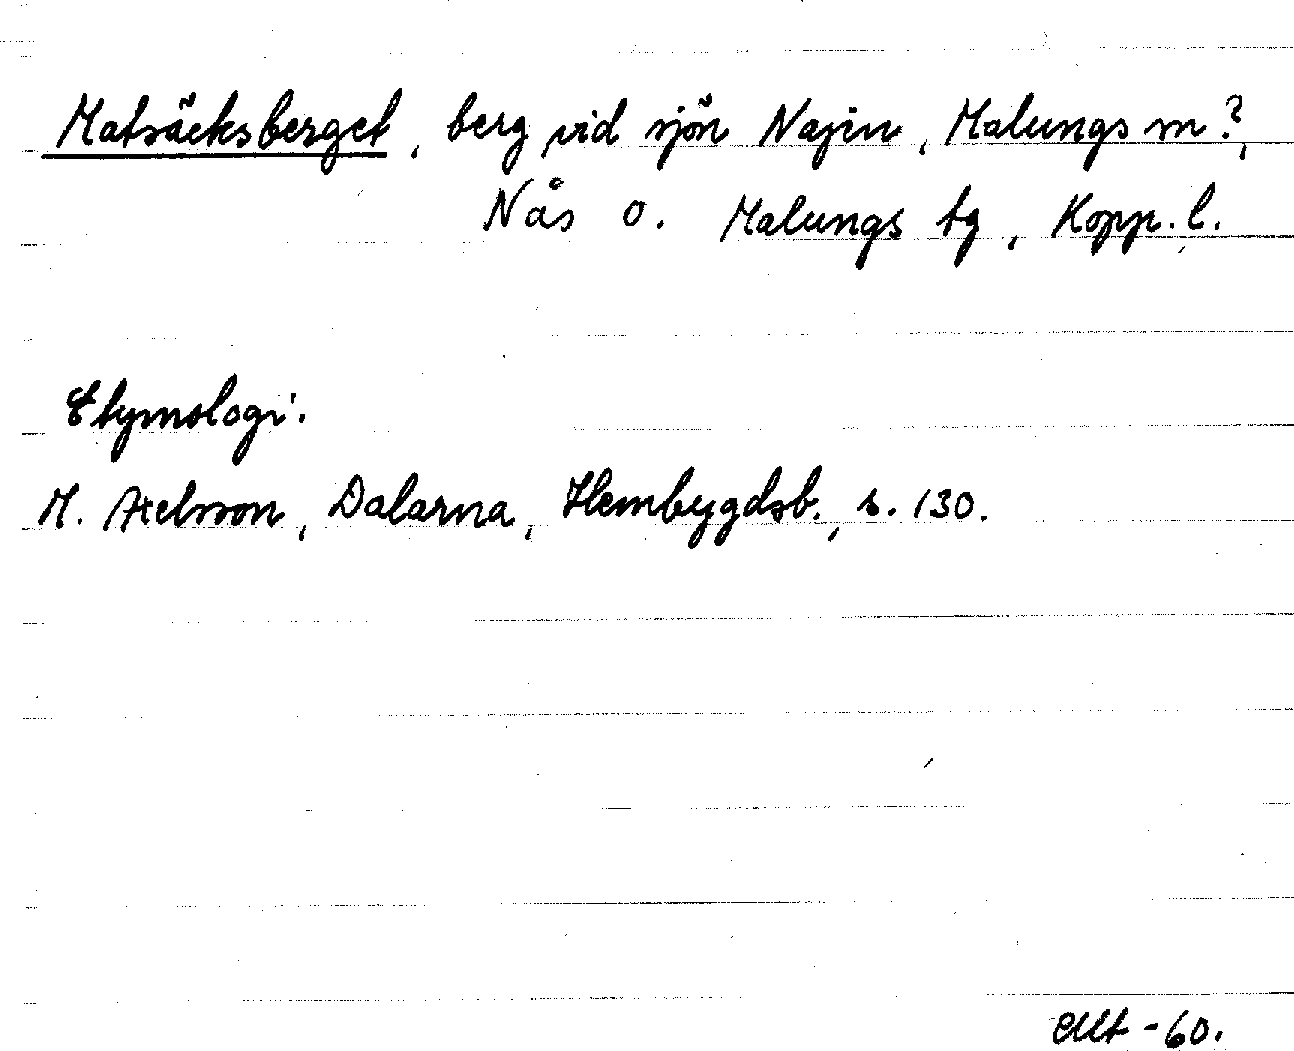 Matsäcksberget, berg vid sjön Najin, Malungs sn?,
Nås o. Malungs tg, Kopp. l.
Etymologi.
M. Axelsson, Dalarna, Hembygdsb., s. 130.
-60.